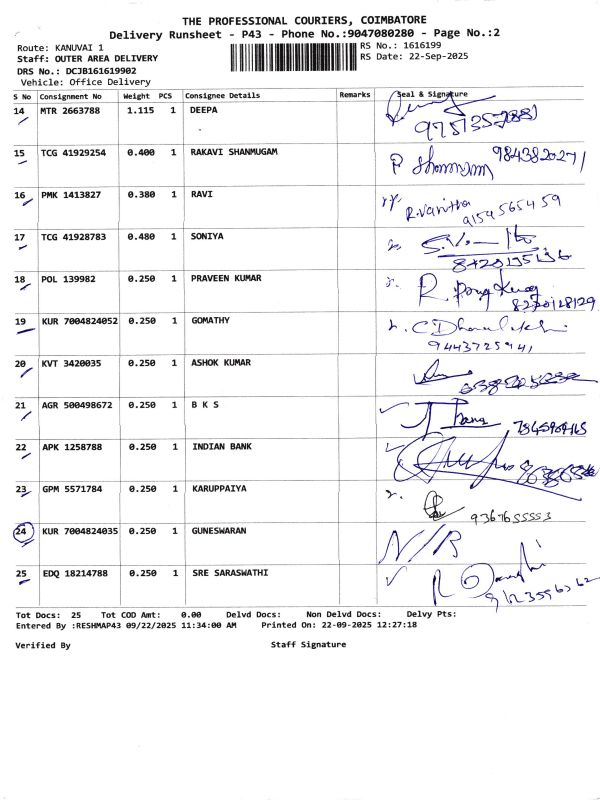 THE PROFESSIONAL COURIERS, COIMBATORE
Delivery Runsheet - P43 - Phone No.:9047080280 - Page No.:2
Route: KANUVAI 1 RS No.: 1616199
Staff: OUTER AREA DELIVERY RS Date: 22-Sep-2025
DRS No.: DCJB161619902
Vehicle: Office Delivery
S No Consignment No Weight PCS Consignee Details Remarks Seal & Signature
14 MTR 2663788 1.115 1 DEEPA
15 TCG 41929254 0.400 1 RAKAVI SHANMUGAM 9843820271
16 PMK 1413827 0.380 1 RAVI R.Vanitha
9159565459
17 TCG 41928783 0.480 1 SONIYA
18 POL 139982 0.250 1 PRAVEEN KUMAR
19 KUR 7004824052 0.250 1 GOMATHY
9443725941
20 KVT 3420035 0.250 1 ASHOK KUMAR
21 AGR 500498672 0.250 1 B K S
22 APK 1258788 0.250 1 INDIAN BANK
23 GPM 5571784 0.250 1 KARUPPAIYA
9367655553
24 KUR 7004824035 0.250 1 GUNESWARAN N/R
25 EDQ 18214788 0.250 1 SRE SARASWATHI
Tot Docs: 25 Tot COD Amt: 0.00 Delvd Docs: Non Delvd Docs: Delvy Pts:
Entered By :RESHMAP43 09/22/2025 11:34:00 AM Printed On: 22-09-2025 12:27:18
Verified By Staff Signature